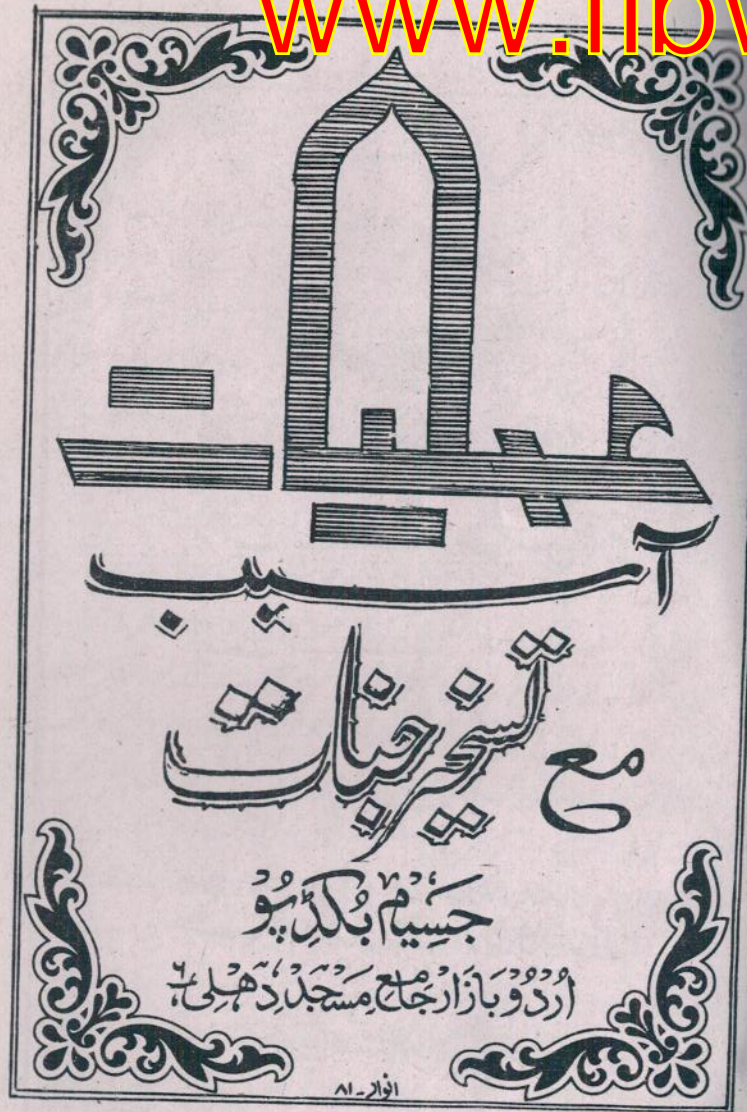 عملیات
آسیب
مع تسخیر جنات
جَسِیْم بُکڈِپُو
اُرْدُوْ بَازَارْ جَامِع مَسْجِدْ دِهْلِی ۶
انوار ۔ ۸۱